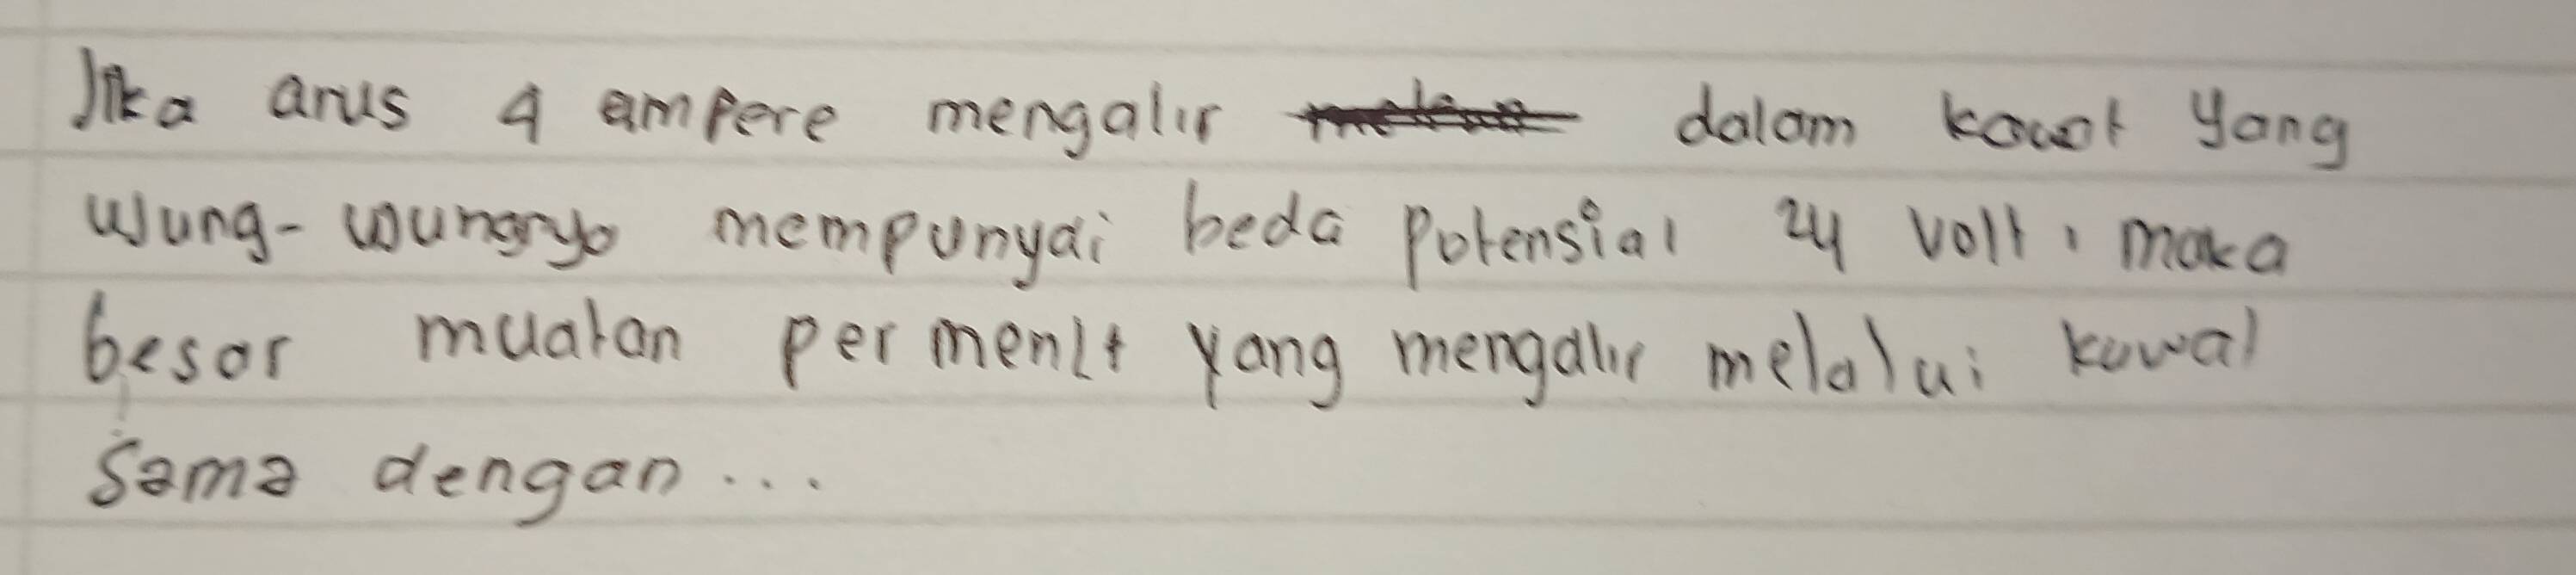 Jika arus 4 ampere mengalir dalam kawat yang
ujung-ujungnya mempunyai beda potensial 24 volt, maka
besar muatan per menit yang mengalir melalui kawat
sama dengan...